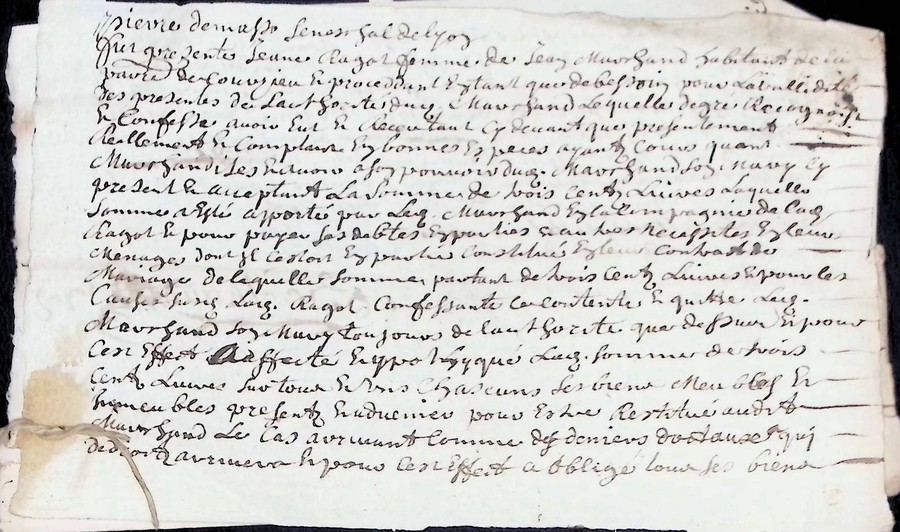 pierre demasso seneschal de lyon
fut presente Jeane Ragot femme de Jean Marchand habitant de la
parr de Courzieu Et procedant Estant que de bessoin pour la vallidité
des presentes de lauthorité dud. Marchand Lequelle de gre Recognoist
Et Confesse avoir Eut Et Receu tant Cy devant que presentement
Reellement Et Comptant En bonnes Especes ayant Cours
Marchandises En son pouvoir dud. Marchand son Mary Cy
present Et aceptant La somme de trois Centz Livres Laquelle
somme a Esté aporté par Led. Marchand En la Compagnie de lad.
Ragot Et pour payer ses debtes En partie Et autres Necessites En leur
Menages dont Il cestoit En partie Constitué En leur Contract de
Mariage de laquelle somme partant de trois Centz Livres Et pour les
Causes Lad. Ragot Confessante Ce contente Et quitte Led.
Marchand son Mary toujours de lauthorité que dessus Et pour
Cest Effect Affecté Et ypothequé Lad. somme de trois
Centz Livres sur tous Et Uns Chascuns ses biens Meubles Et
Immeubles presentz Et advenier pour Estre Restitué audit
Marchand Le Cas arrivant Comme des deniers dotaux qui
arrivera Et pour Cest Effect a obligé tous ses biens